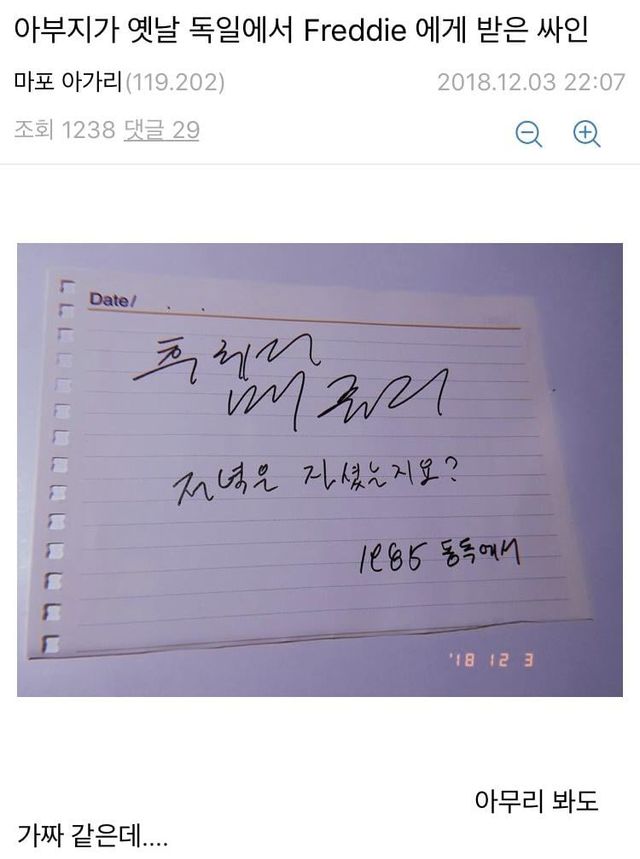 아부지가 옛날 독일에서 Freddie 에게 받은 싸인
마포 아가리(119.202)
2018.12.03 22:07
조회 1238 댓글 29
Date/ . .
후레디
머큐리
저녁은 자셨는지요?
1985 동독에서
'18 12 3
아무리 봐도
가짜 같은데....